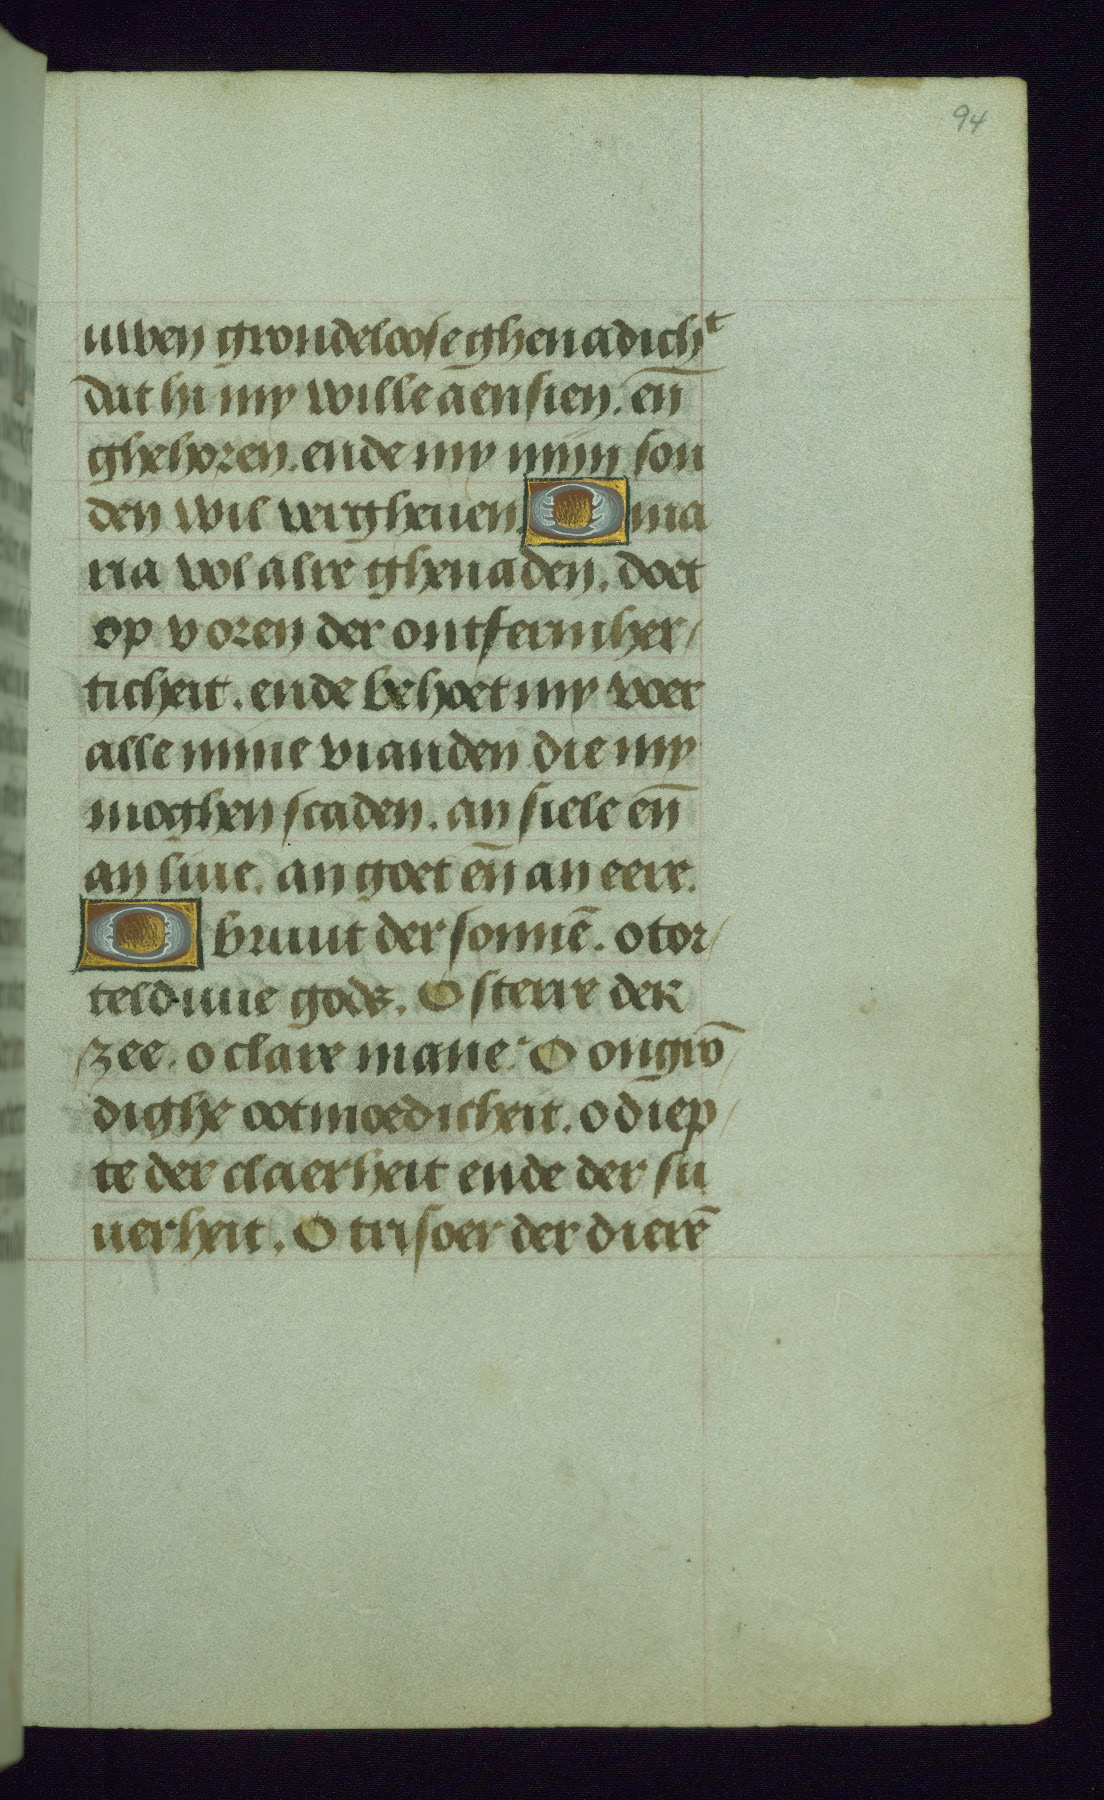 94
uwen grondeloose ghenadicht
dat hi my wille aensien. en̄
ghehoren. ende my mijn son
den wil vergheuen O ma
ria vol alre ghenaden. doet
op voren der ontfermher/
ticheit. ende behoet my voer
alle mine vianden die my
moghen scaden. an siele en̄
an liue. an goet en̄ an eere.
O bruut der sonnē. o tor/
telduue gods. O sterre der
zee. o clare mane. O ongrō/
dighe ootmoedicheit. o diep/
te der claerheit ende der su
uerheit. O trisoer der dierē